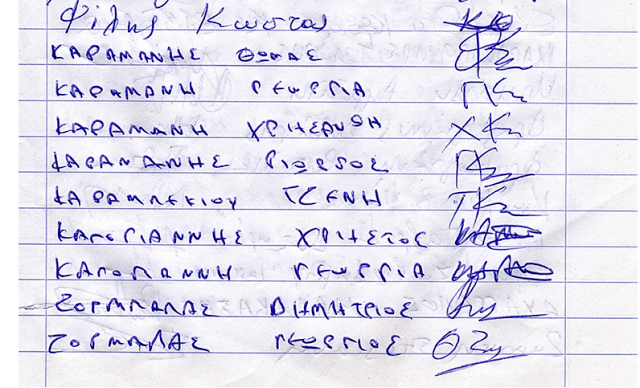 Φίλης Κώστας
ΚΑΡΑΜΑΝΗΣ ΘΩΜΑΣ
ΚΑΡΑΜΑΝΗ ΓΕΩΡΓΙΑ
ΚΑΡΑΜΑΝΗ ΧΡΗΣΑΝΘΗ ΧΚ
ΚΑΡΑΜΑΝΗΣ ΓΙΩΡΓΟΣ ΓΚ
ΚΑΡΑΜΠΕΚΙΟΥ ΤΖΕΝΗ ΤΚ
ΚΑΓΟΓΙΑΝΝΗΣ ΧΡΗΣΤΟΣ
ΚΑΓΟΓΙΑΝΝΗ ΓΕΩΡΓΙΑ
ΖΟΡΜΠΑΛΑΣ ΔΗΜΗΤΡΙΟΣ
ΖΟΡΜΠΑΛΑΣ ΓΕΩΡΓΙΟΣ